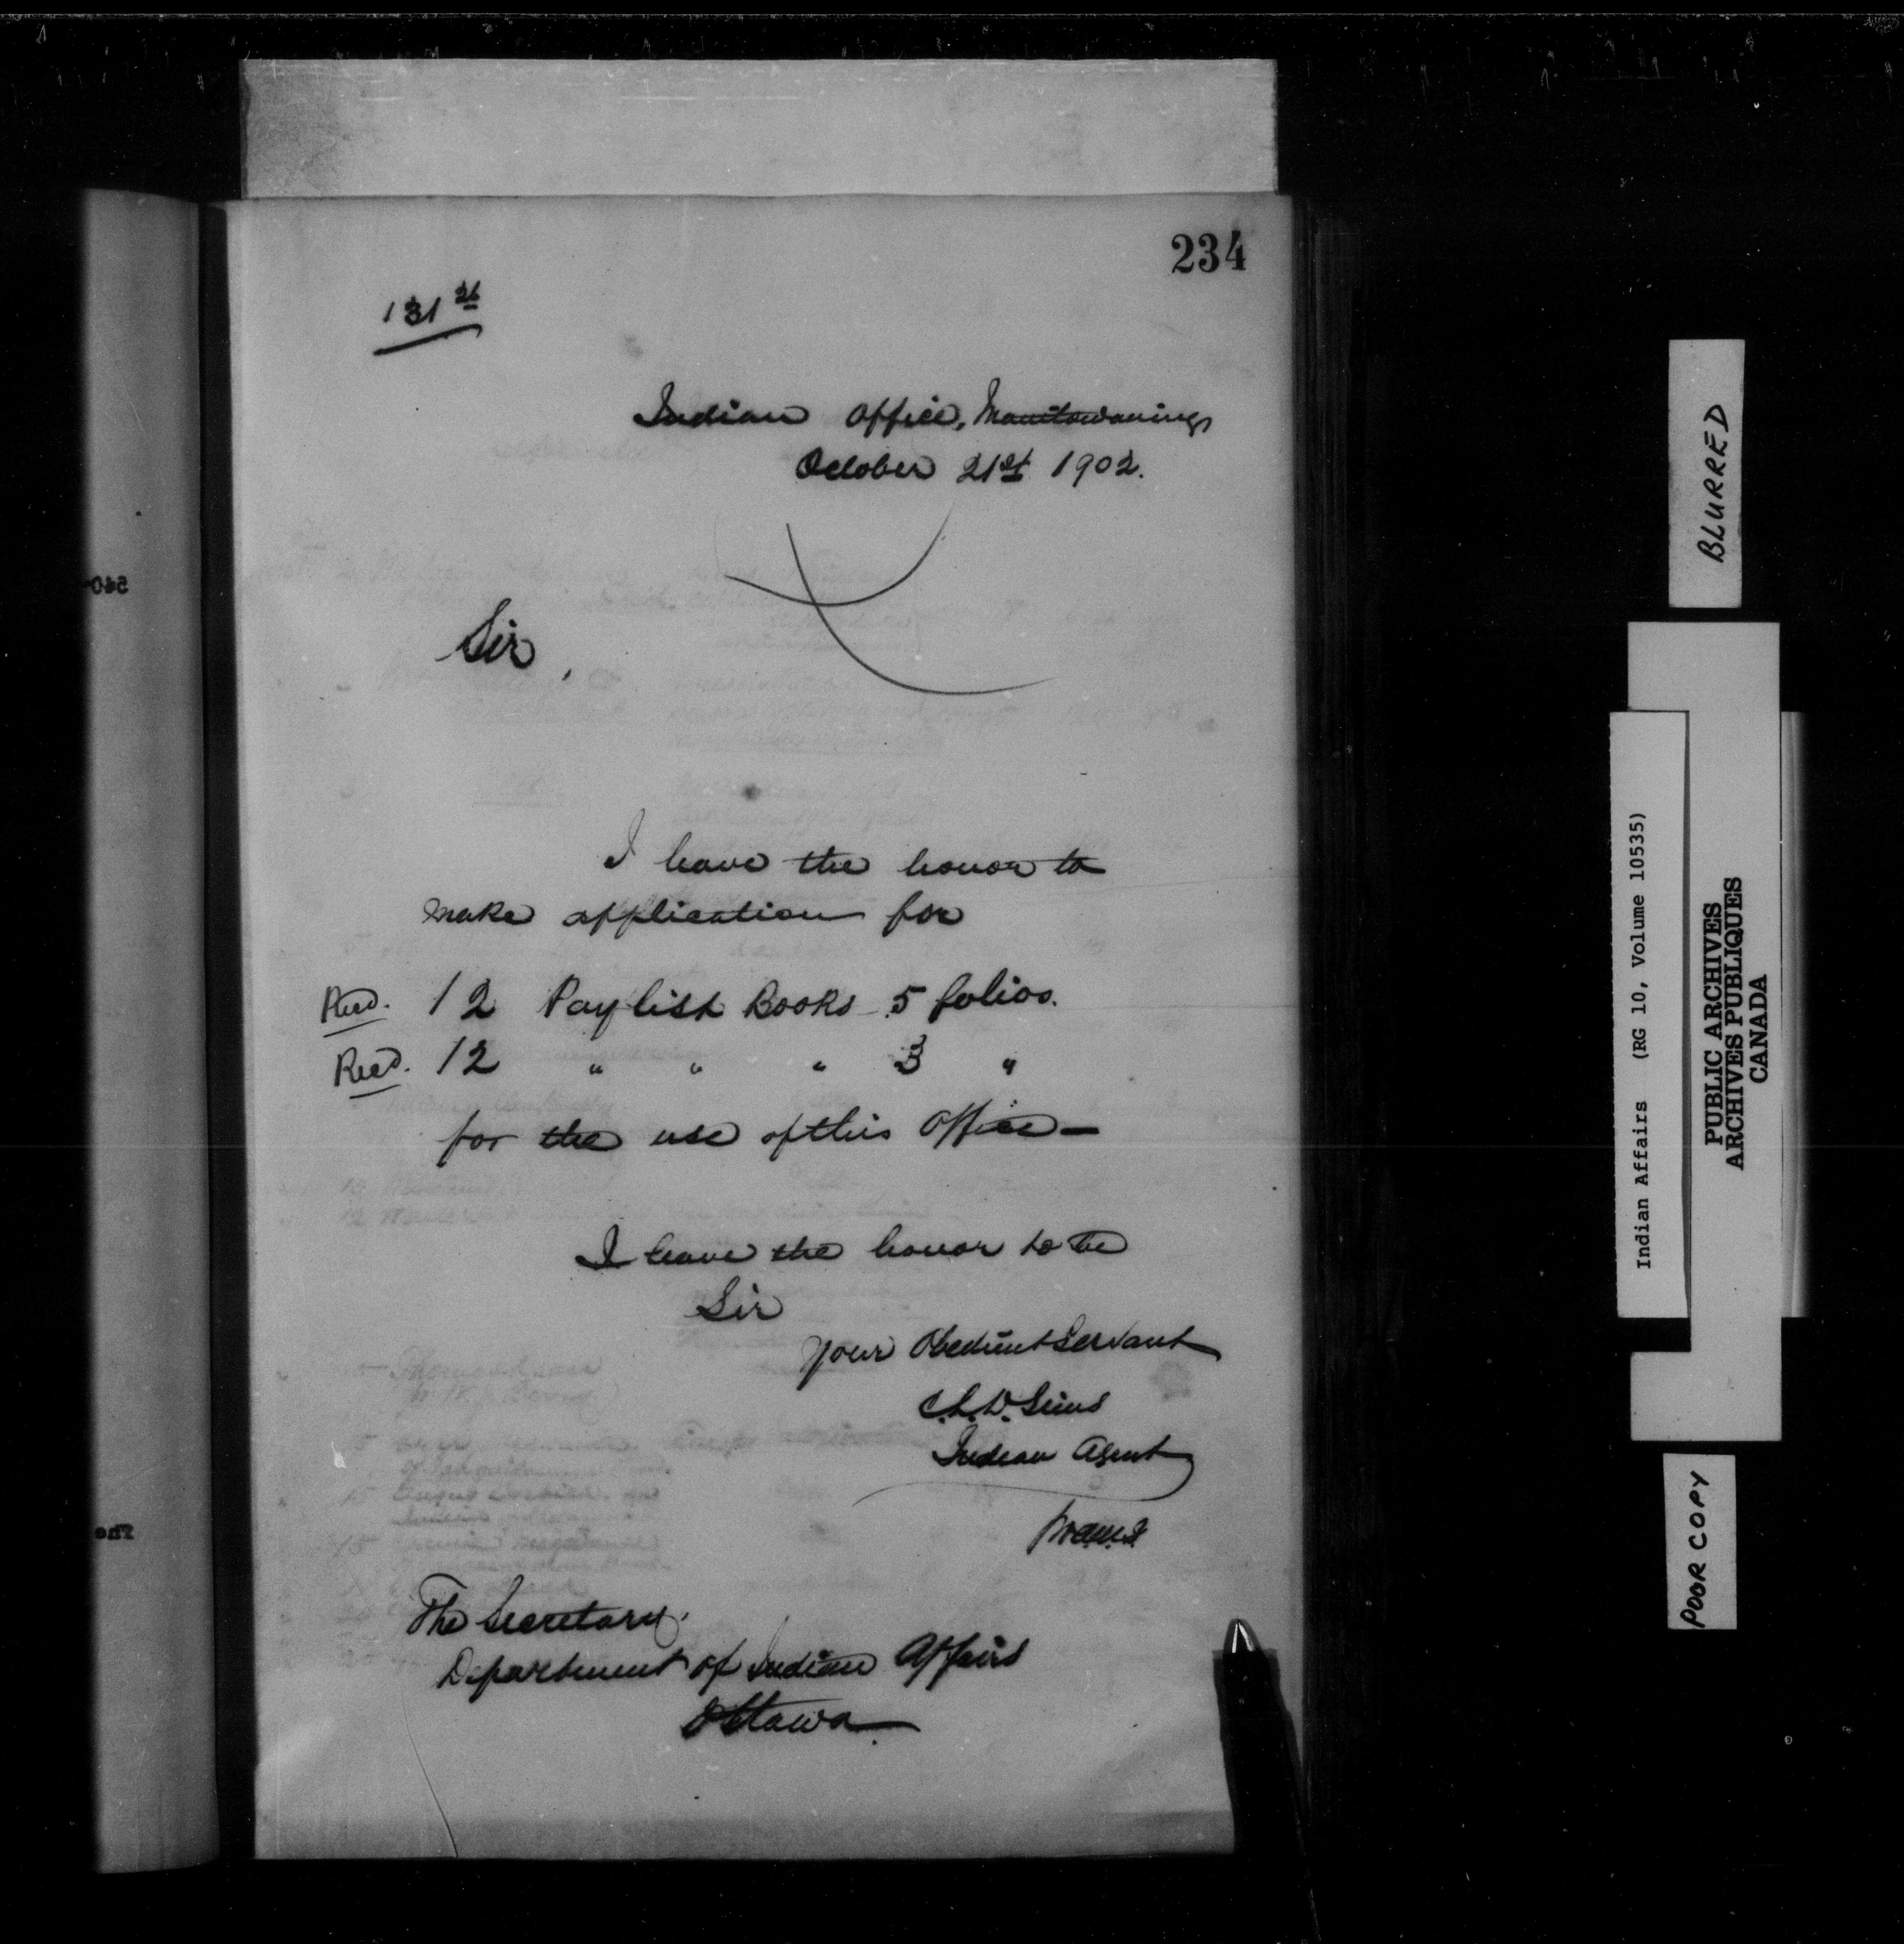 234
131
Indian Office, Manitowaning
October 21st 1902.
Sir,
I have the honor to
make application for
Recd. 12 Paylist Books 5 folios.
Recd. 12 " " " 3 "
for the use of this Office—
I have the honor to be
Sir
Your Obedient Servant
C.L.D. Sims
Indian Agent
The Secretary.
Department of Indian Affairs
Ottawa.
BLURRED
Indian Affairs (RG 10, Volume 10535)
PUBLIC ARCHIVES
ARCHIVES PUBLIQUES
CANADA
POOR COPY